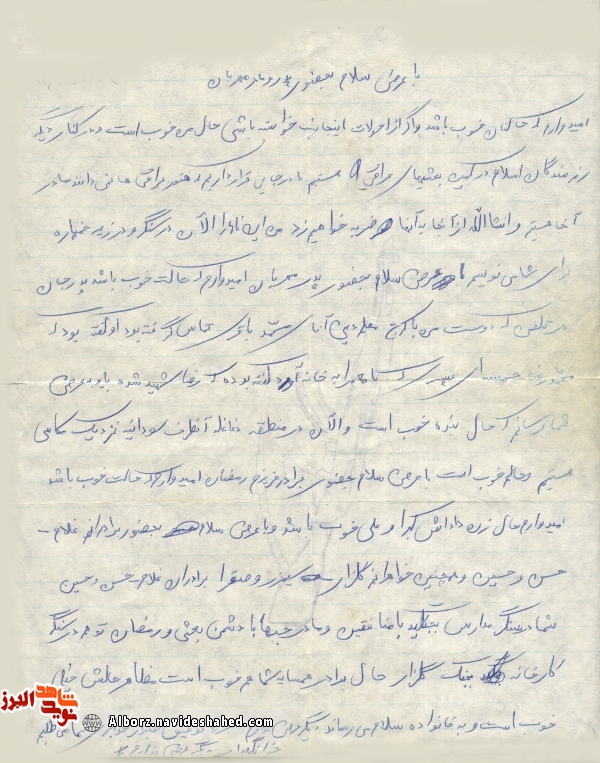 با عرض سلام بحضور پدر و مادر مهربان
امیدوارم که حالتان خوب باشد و اگر از احوالات اینجانب خواسته باشی حال من خوب است و در کنار دیگر
رزمندگان اسلام در کمین بعثیهای عراقی هستیم ما در جایی قرار داریم که هنوز عراقی ها نمی دانند ما در
آنجا هستیم و انشاالله از آنجا به آنها ضربه خواهیم زد من این نامه را الآن در سنگر و در زیر خمپاره
برای شما می نویسم با عرض سلام بحضور پدر مهربان امیدوارم که حالت خوب باشد پدر جان
در تلفنی که دوست من با کرج آقای محمد تماس گرفته بود او گفته بود که
محمدرضا پسری که به خانه آمد گفته بوده که رضا شهید شده باید به عرض
شما برسانم که حال بنده خوب است و الآن در منطقه آنطرف نزدیک
هستیم و حالم خوب است با عرض سلام بحضور برادر عزیزم رمضان امیدوارم که حالت خوب باشد
امیدوارم حال زن داداش کبرا و علی خوب باشد و با عرض سلام بحضور برادرانم غلام -
حسن و حسین و همچنین خواهرانم گلزار و صغرا برادران غلام حسن و حسین
شما در سنگر مدارس بجنگید با منافقین و ما در جبهه با دشمن بعثی و رمضان تو هم در سنگر
کارخانه بجنگ گلزار حال برادر همسایه شما هم خوب است مظاهر حالش خیلی
خوب است و به خانواده سلام می رساند دیگر عرض
دیگر عرضی ندارم
شاهد
نوید
البرز
Alborz.navideshahed.com